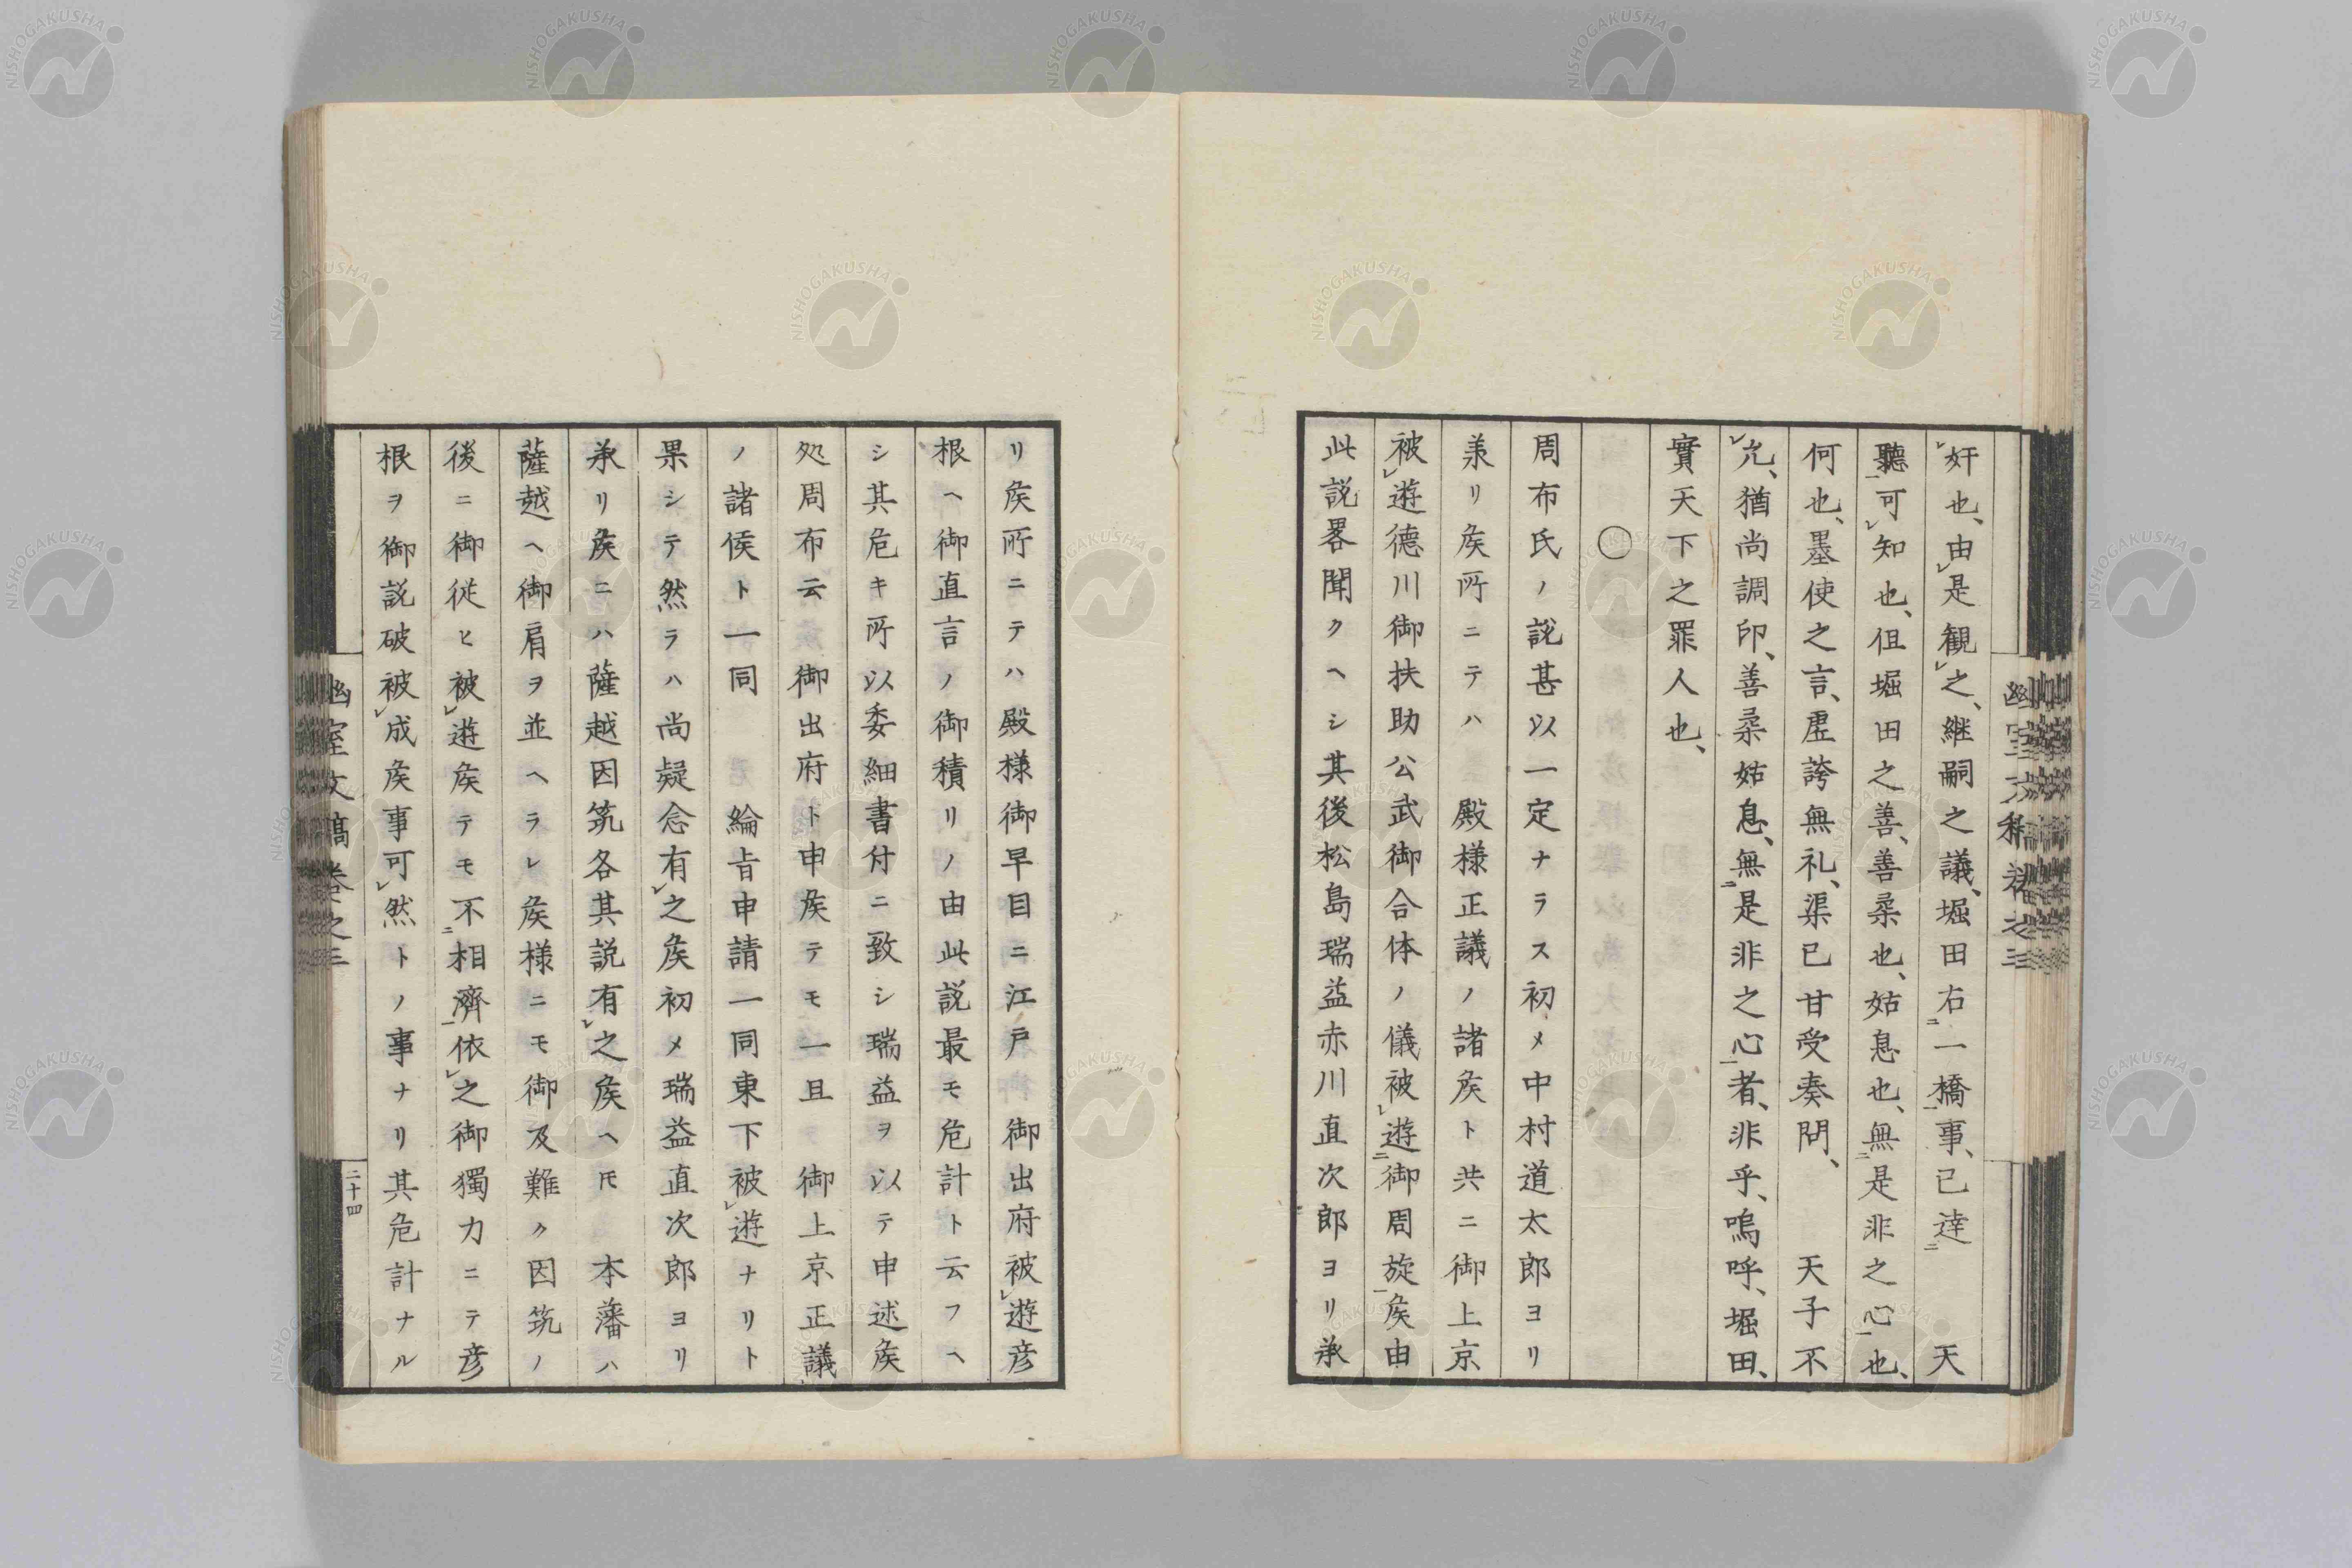 奸也、由是観之、継嗣之議、堀田右一橋事、已逹　天
聽可知也、伹堀田之善、善柔也、姑息也、無是非之心也、
何也、墨使之言、虚誇無礼、渠已甘受奏問、　天子不
允、猶尚調印、善柔姑息、無是非之心者、非乎、嗚呼、堀田、
實天下之罪人也、
○
周布氏ノ説甚以一定ナラス初メ中村道太郎ヨリ
羕リ矦所ニテハ　殿様正議ノ諸矦ト共ニ御上京
被遊德川御扶助公武御合体ノ儀被遊御周旋矦由
此説畧聞クヘシ其後松島瑞益赤川直次郎ヨリ承
リ矦所ニテハ殿様御早目ニ江戸御出府被遊彦
根ヘ御直言ノ御積リノ由此説最モ危計ト云フヘ
シ其危キ所以委細書付ニ致シ瑞益ヲ以テ申述矦
処周布云御出府ト申矦テモ一旦御上京正議
ノ諸侯ト一同　綸旨申請一同東下被遊ナリト
果シテ然ラハ尚疑念有之矦初メ瑞益直次郎ヨリ
承リ矦ニハ薩越因筑各其説有之矦ヘ𪜈　本藩ハ
薩越ヘ御肩ヲ並ヘラレ矦様ニモ御及難ク因筑ノ
後ニ御従ヒ被遊矦テモ不相濟依之御獨力ニテ彦
根ヲ御説破被成矦事可然トノ事ナリ其危計ナル
幽室文稿卷之三
二十四